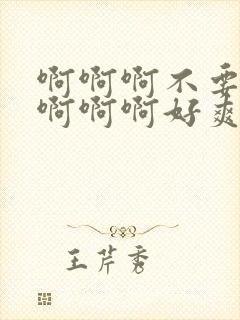 啊啊啊不要
啊啊啊好爽
王芹秀